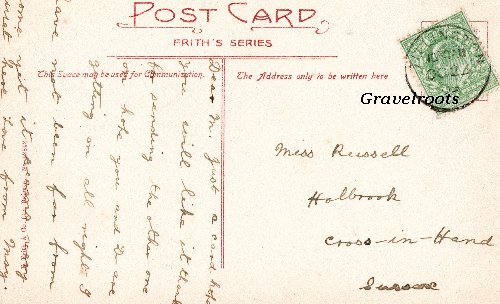 POST CARD
FRITH'S SERIES
This Space may be used for Communication.
The Address only to be written here
Gravelroots
Miss Russell
Holbrook
Cross-in-Hand
Sussex
Dear M. Just a card hope
you will like it thank
for sending the other one
in hope you and D are
getting on all right I
have not been far from
home yet it
here Love from May.